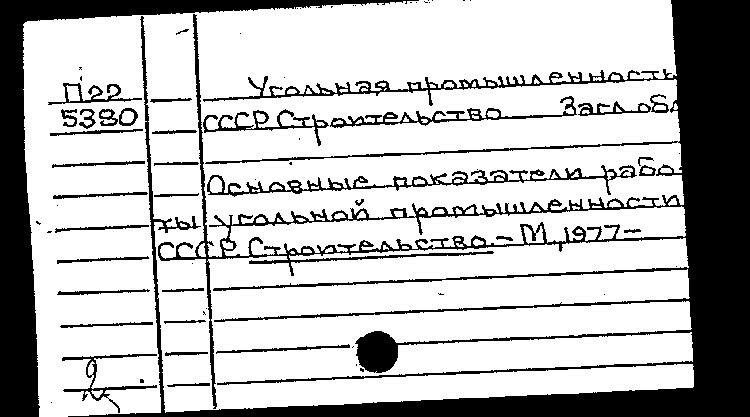 Пер Угольная промышленность
5380 СССР. Строительство Загл. обл
Основные показатели рабо-
ты угольной промышленности
СССР. Строительство. - М., 1977-